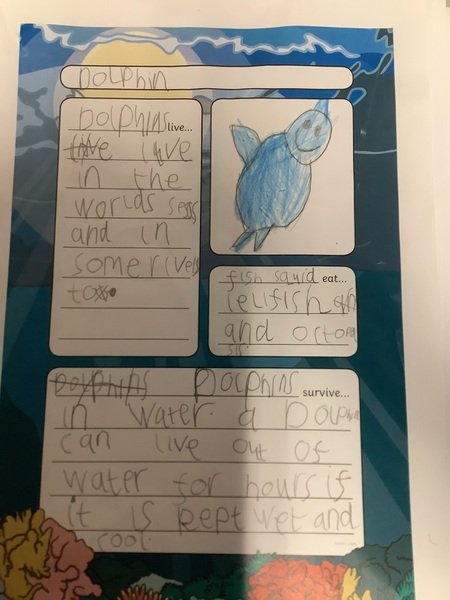 Dolphin
Dolphins live...
live
in the
worlds seas
and in
some rivers
too
fish squid eat...
jellfish
and octopu
sis.
Dolphins Dolphins survive...
in water. a Dolphin
can live out of
water for hours if
it is kept wet and
cool.